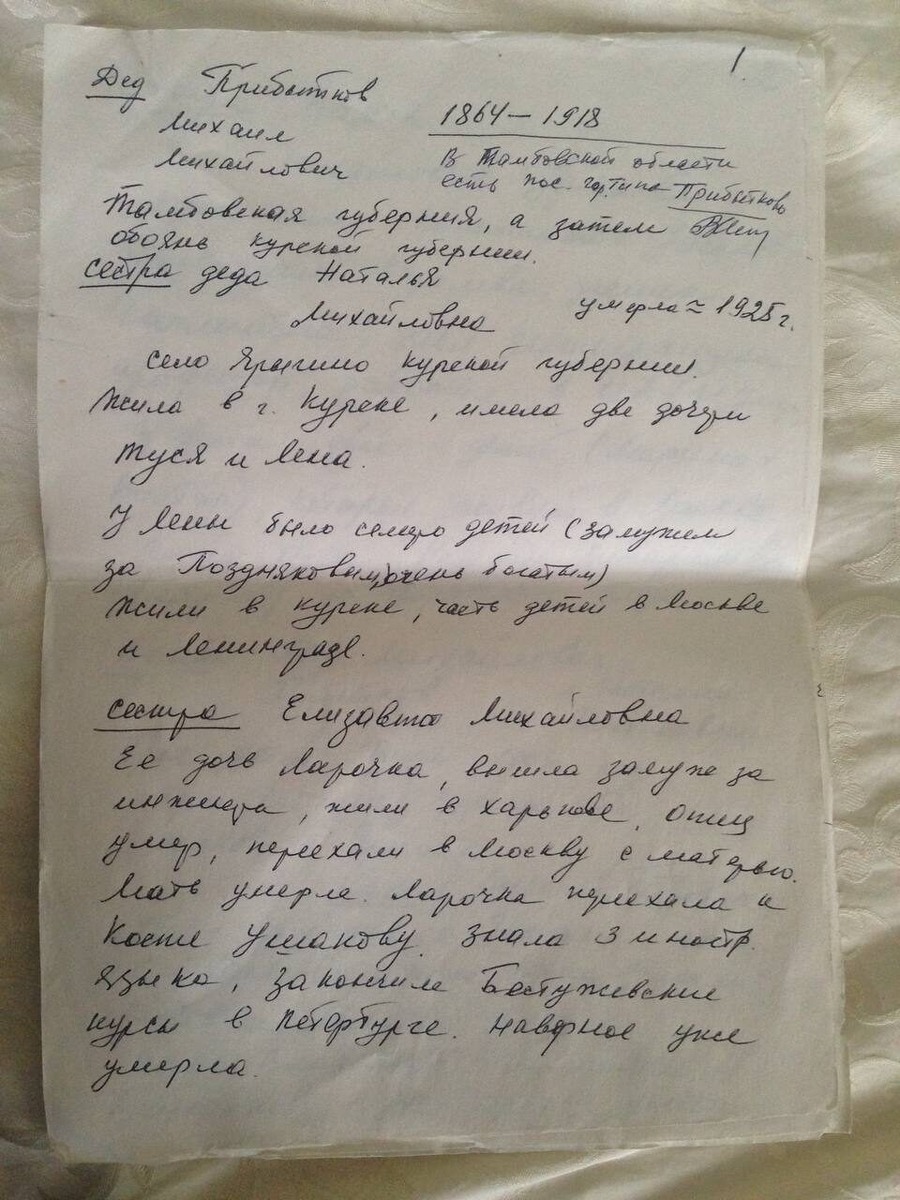 1.
Дед Прибытков
Михаил
Михайлович
1864 – 1918
В Тамбовской области
есть пос. гор. типа Прибытково
Тамбовская губерния, а затем
Обоянь Курской губернии.
сестра деда Наталья
Михайловна умерла ≈ 1925 г.
село Курской губернии.
Жила в г. Курске, имела две дочери
Туся и Лена.
У Лены было семеро детей (замужем
за Поздняковым, очень богатым)
Жили в Курске, часть детей в Москве
и Ленинграде.
сестра Елизавета Михайловна
Ее дочь Ларочка, вышла замуж за
инженера, жили в Харькове, отец
умер, переехали в Москву с матерью.
Мать умерла. Ларочка переехала к
Косте Ушакову. Знала 3 иностр.
языка, закончила Бестужевские
курсы в Петербурге. Наверное уже
умерла.